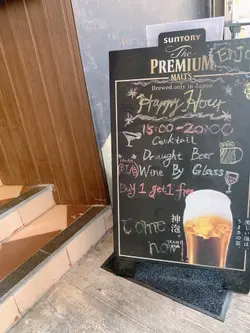 SUNTORY
The
PREMIUM
MALT'S
Enjoy
Brewed only in Japan
Happy Hour
15:00-20:00
Cocktail
Draught Beer
Wine By Glass
Buy 1 get 1 free
Come
now
神泡。
美しい泡は、
うまさの証。